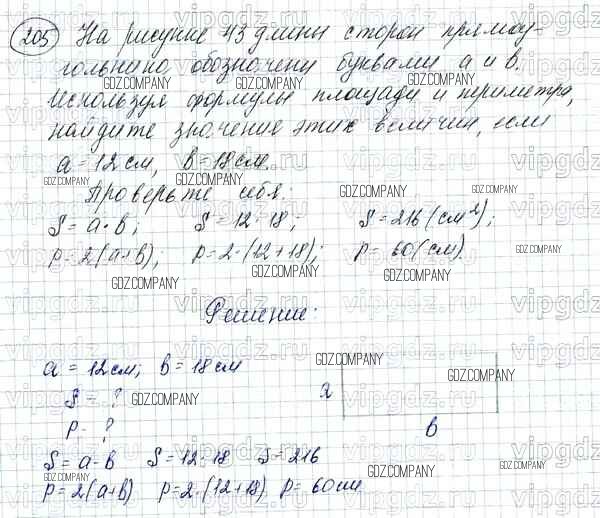 205 На рисунке 43 длины сторон прямоу-
гольника обозначены буквами a и b.
Используя формулы площади и периметра,
найдите значение этих величин, если
a = 12 см, b = 18 см.
Проверьте себя:
S = a · b; S = 12 · 18; S = 216 (см²);
P = 2(a+b); P = 2 · (12+18); P = 60 (см).
Решение:
a = 12 см; b = 18 см
S = ?
P - ?
a
b
S = a · b S = 12 · 18 S = 216
P = 2(a+b) P = 2 · (12+18) P = 60 см
GDZ.COMPANY
vipgdz.ru